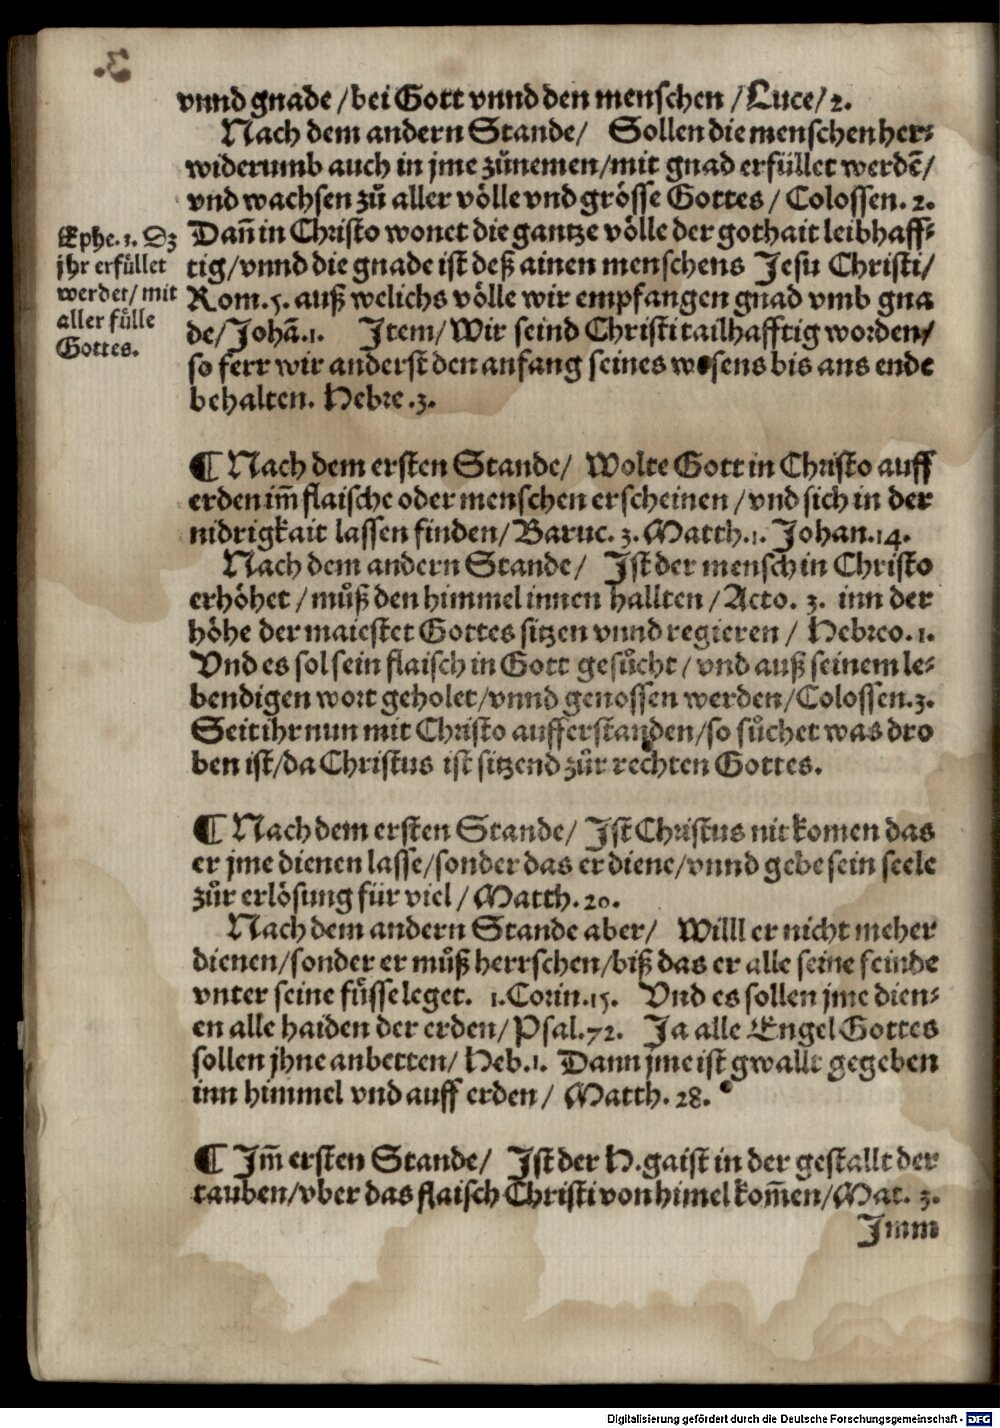 vnnd gnade /bei Gott vnnd den menschen /Luce/2.
Nach dem andern Stande/ Sollen die menschen her⸗
widerumb auch in jme zůnemen/mit gnad erfüllet werdē/
vnd wachsen zů aller völle vnd grösse Gottes/ Colossen. 2.
Dañ in Christo wonet die gantze völle der gothait leibhaff⸗
tig/vnnd die gnade ist deß ainen menschens Jesu Christi/
Rom.5. auß welichs völle wir empfangen gnad vmb gna
de/Johā.1. Jtem/Wir seind Christi tailhafftig worden/
so ferr wir anderst den anfang seines wesens bis ans ende
behalten. Hebre .3.
Ephe.3. Dz
jhr erfüllet
werdet/ mit
aller fülle
Gottes.
¶ Nach dem ersten Stande/ Wolte Gott in Christo auff
erden im̃ flaische oder menschen erscheinen /vnd sich in der
nidrigkait lassen finden/ Baruc. 3. Matth.1. Johan.14.
Nach dem andern Stande/ Jst der mensch in Christo
erhöhet /můß den himmel innen hallten /Acto. 3. inn der
höhe der maiestet Gottes sitzen vnnd regieren / Hebreo. 1.
Vnd es sol sein flaisch in Gott gesůcht / vnd auß seinem le⸗
bendigen wort geholet/vnnd genossen werden/Colossen.3.
Seit ihr nun mit Christo aufferstanden/so sůchet was dro
ben ist/da Christus ist sitzend zůr rechten Gottes.
¶ Nach dem ersten Stande/ Jst Christus nit komen das
er jme dienen lasse/sonder das er diene/vnnd gebe sein seele
zůr erlösung für viel / Matth. 20.
Nach dem andern Stande aber/ Willl er nicht meher
dienen/sonder er můß herrschen/biß das er alle seine feinde
vnter seine füsse leget. 1.Corin.15. Vnd es sollen jme dien⸗
en alle haiden der erden/ Psal.72. Ja alle Engel Gottes
sollen jhne anbetten/ Heb.1. Dann jme ist gwallt gegeben
inn himmel vnd auff erden/ Matth. 28.
¶ Jm̃ ersten Stande/ Jst der H.gaist in der gestallt der
tauben/vber das flaisch Christi von himel kom̃en/Mat. 3.
Jmm
Digitalisierung gefördert durch die Deutsche Forschungsgemeinschaft - DFG